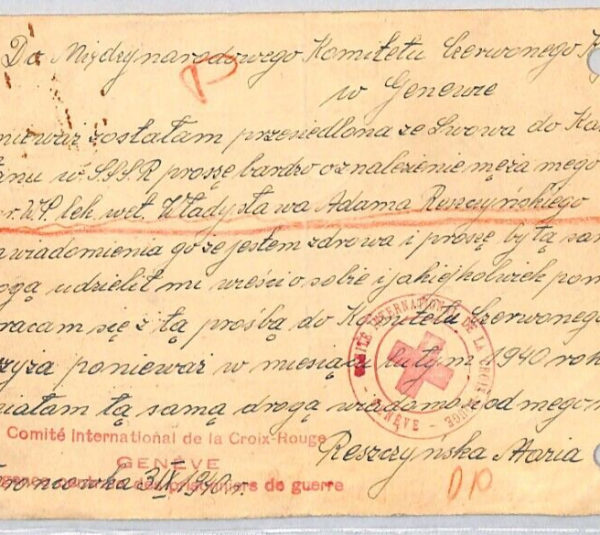 Do Międzynarodowego Komitetu Czerwonego K
w Genewie
nieważ zostałam przesiedlona ze Lwowa do Kaz
anu w S.S.S.R proszę bardzo oznalezienie męża mego
r. W.P. lek. wet. Władysława Adama Reszczyńskiego
awiadomienia go że jestem zdrowa i proszę by tą sam
ogą udzielił mi wieści o sobie i jakiejkolwiek pom
racam się z tą prośbą do Komitetu Czerwonego
zyża ponieważ w miesiącu lutym 1940 rok
miałam tą samą drogą wiadomo od mego
COMITÉ INTERNATIONAL DE LA CROIX-ROUGE - GENÈVE -
Comité International de la Croix-Rouge
GENÈVE
prisonniers de guerre
Reszczyńska Maria
3/IX 1940 r.